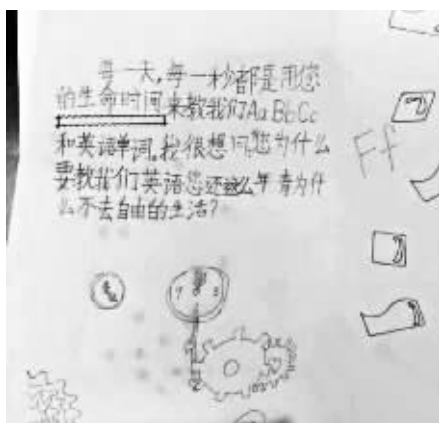 每一天,每一秒都是用您
的生命时间来教我们AaBbCc
和英语单词,我很想问您为什么
要教我们英语您还这么年青为什
么不去自由的生活?
Ff